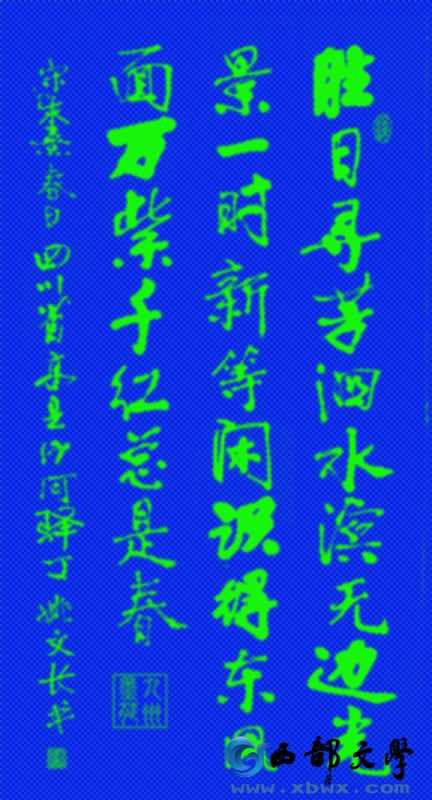 胜日寻芳泗水滨无边光
景一时新等闲识得东风
面万紫千红总是春
宋朱熹春日四川
河驿丁 姚文长书
西部文学
www.xbwx.com